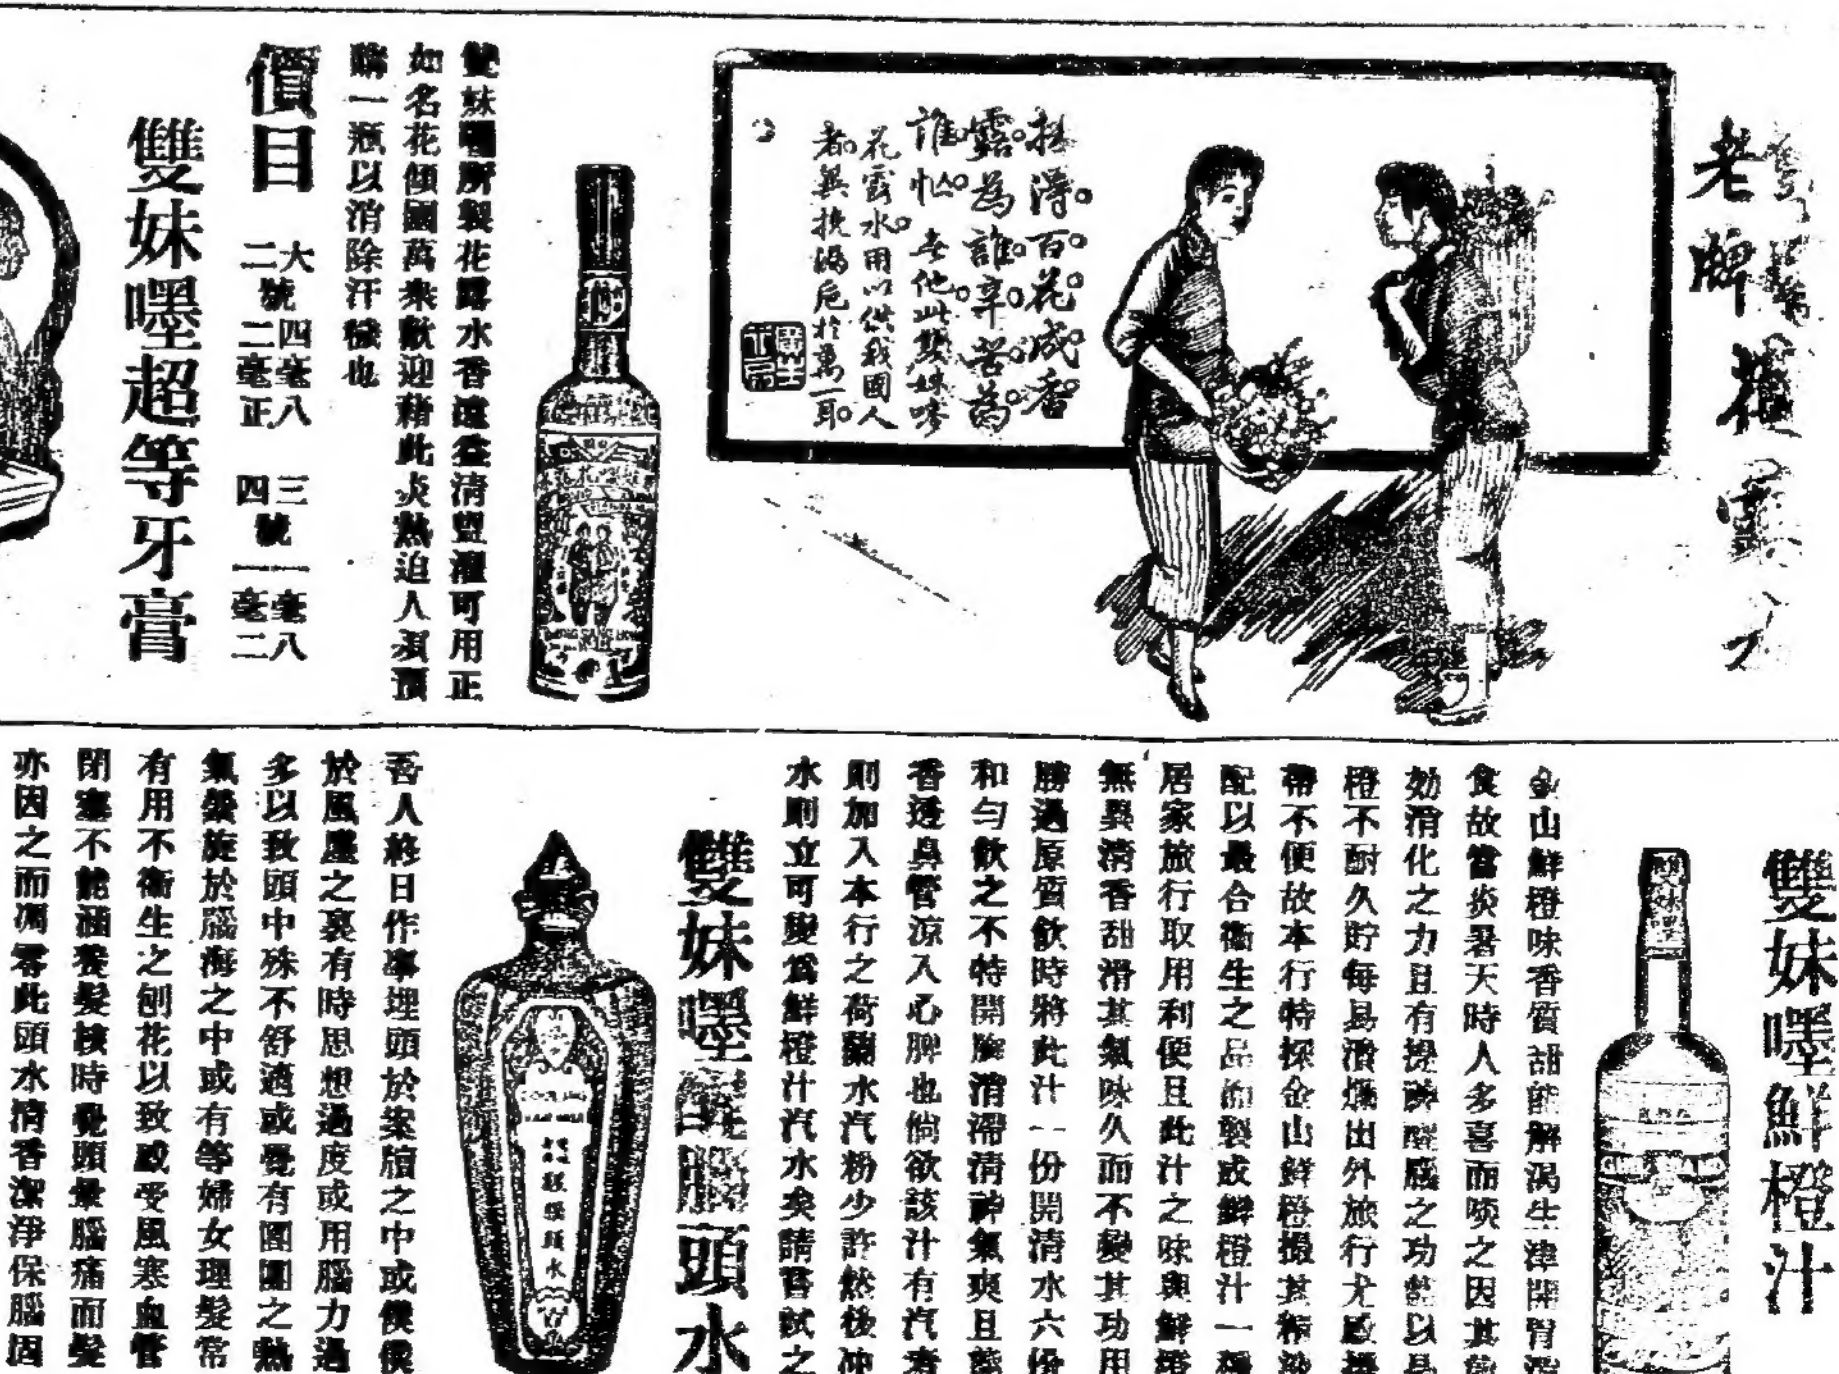 雙妹嘜
老牌花露水
採得百花成香
露為誰辛苦為
誰忙世他此雙妹嘜
花露水用以供我國人
者無挽漏卮於萬一耳
雙妹嘜所製花露水香遠益清盥濯可用正
如名花傾國萬衆歡迎藉此炎熱迫人須預
購一瓶以消除汗穢也
價目
大號四毫八
二號二毫正
三號一毫八
四號一毫二
雙妹嘜超等牙膏
雙妹嘜鮮橙汁
金山鮮橙味香質甜能解渴生津開胃
食故當炎暑天時人多喜而啖之因其
効消化之力且有提神醒腦之功
橙不耐久貯每易潰爛出外旅行尤
帶不便故本行特採金山鮮橙撮其
配以最合衞生之品而製成鮮橙汁一
居家旅行取用利便且此汁之味與鮮橙
無異清香甜滑其氣味久而不變其功用
勝過原質飲時將此汁一份開清水六份
和勻飲之不特開胸消滯清神氣爽且
香透鼻管涼入心脾也倘欲該汁有汽者
則加入本行之荷蘭水汽粉少許然後沖
水則立可變為鮮橙汁汽水矣請嘗試之
雙妹嘜醒腦頭水
吾人終日作事埋頭於案牘之中或僕僕
於風塵之裏有時思想過度或用腦力過
多以致頭中殊不舒適或覺有團團之熱
氣縈旋於腦海之中或有等婦女理髮常
有用不衞生之刨花以致感受風寒血管
閉塞不能涵養髮核時覺頭暈腦痛而髮
亦因之而凋零此頭水清香潔淨保腦固